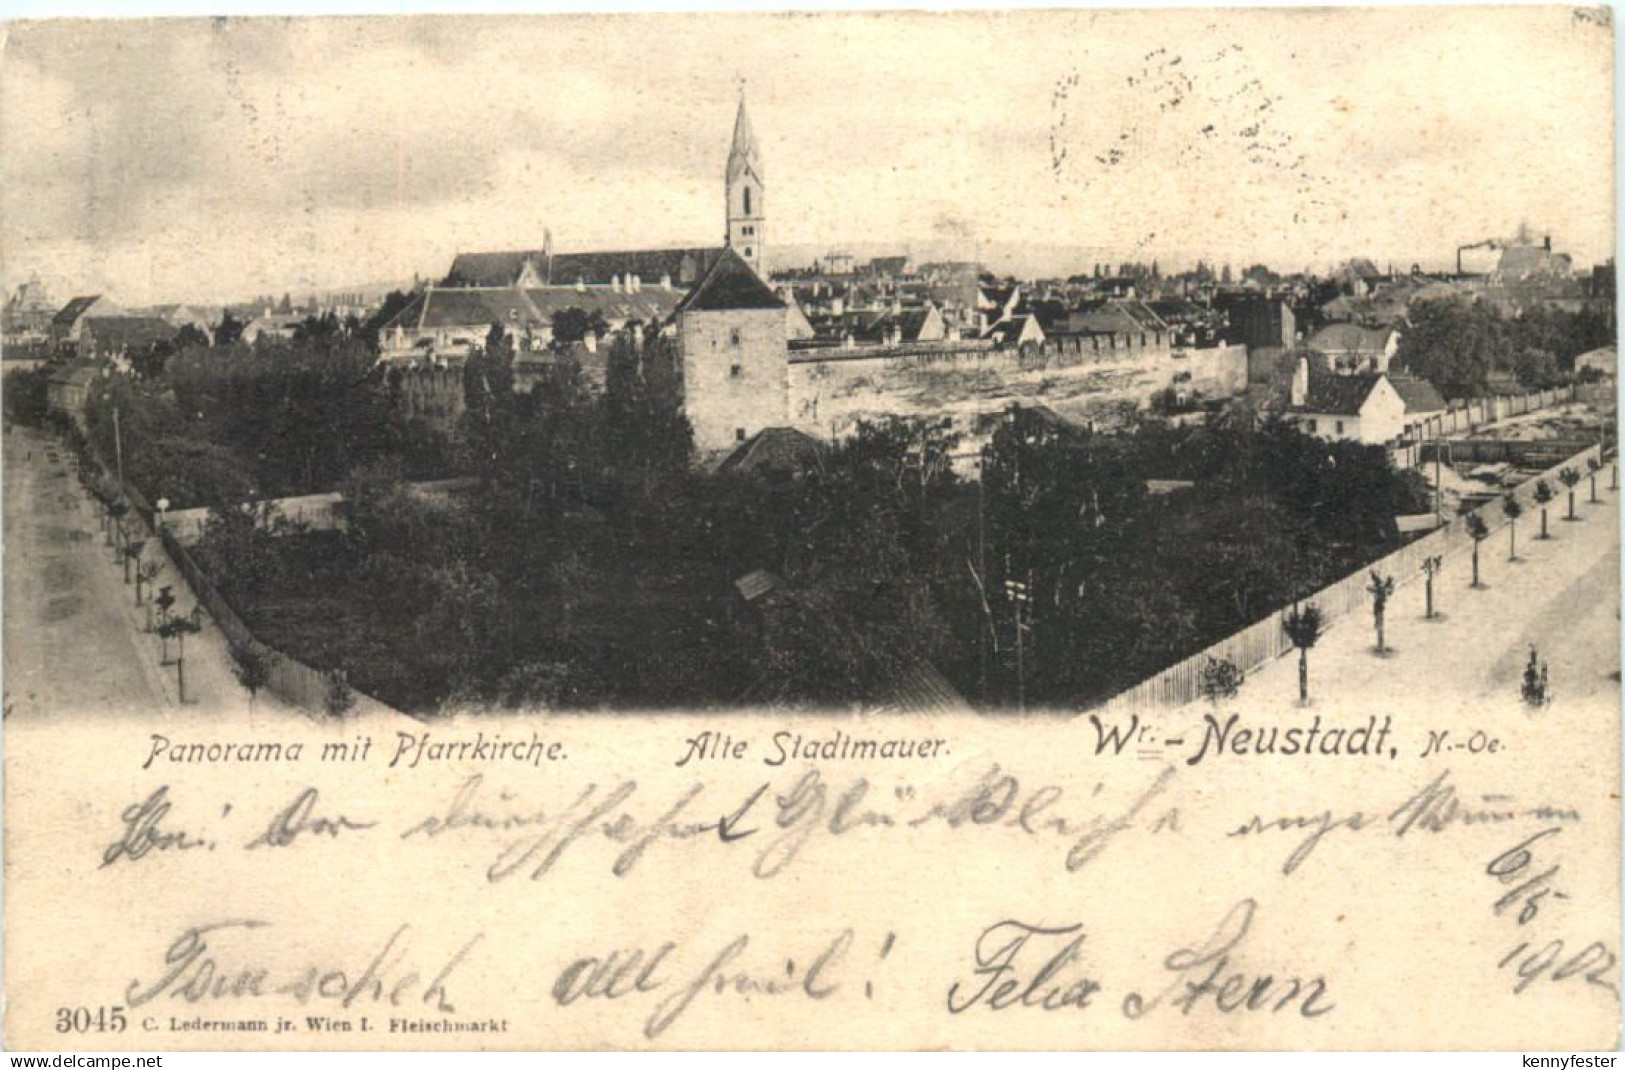 Panorama mit Pfarrkirche. Alte Stadtmauer. Wr.-Neustadt, N.-Oe.
Bei der durchfahrt Glückliche ange
6/5
1902
All heil! Felix Stern
3045 C. Ledermann jr. Wien I. Fleischmarkt
delcampe.net
kennyfester